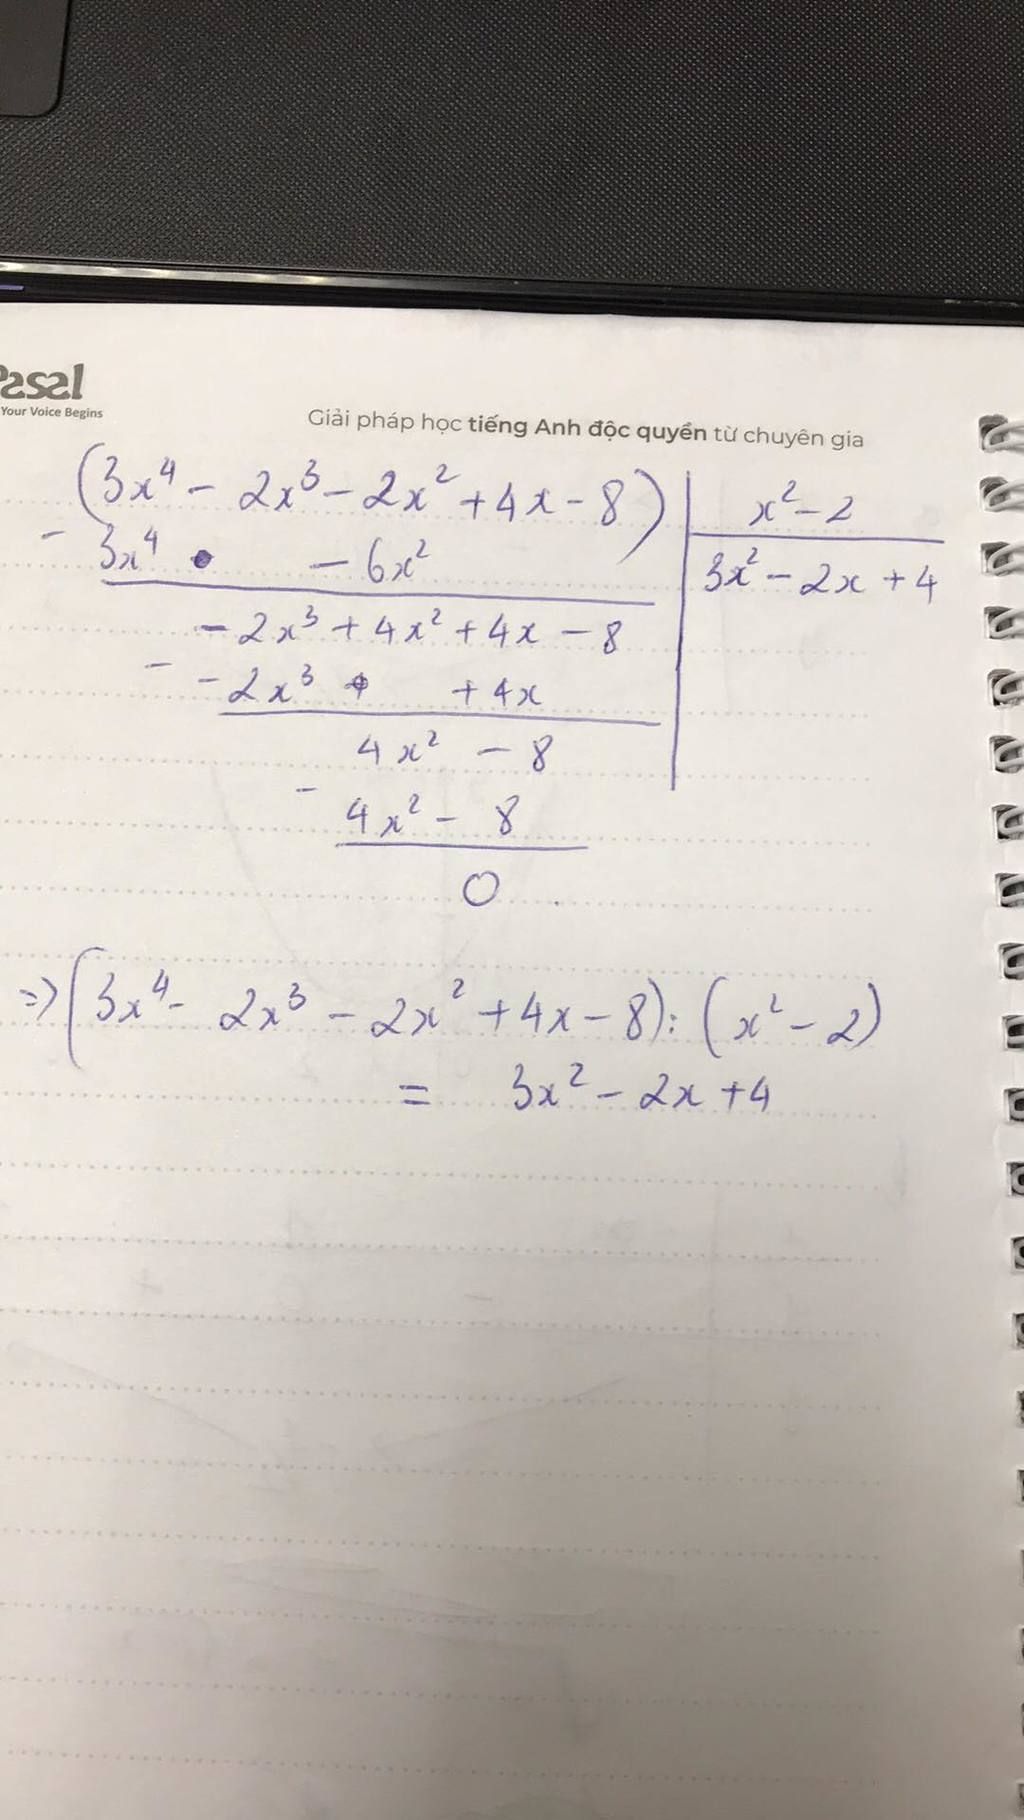 Pasal
Your Voice Begins
Giải pháp học tiếng Anh độc quyền từ chuyên gia
(3x⁴ - 2x³ - 2x² + 4x - 8) | x² - 2
- 3x⁴ - 6x² | 3x² - 2x + 4
- 2x³ + 4x² + 4x - 8
- - 2x³ + 4x
4x² - 8
- 4x² - 8
0
=> (3x⁴ - 2x³ - 2x² + 4x - 8) : (x² - 2)
= 3x² - 2x + 4